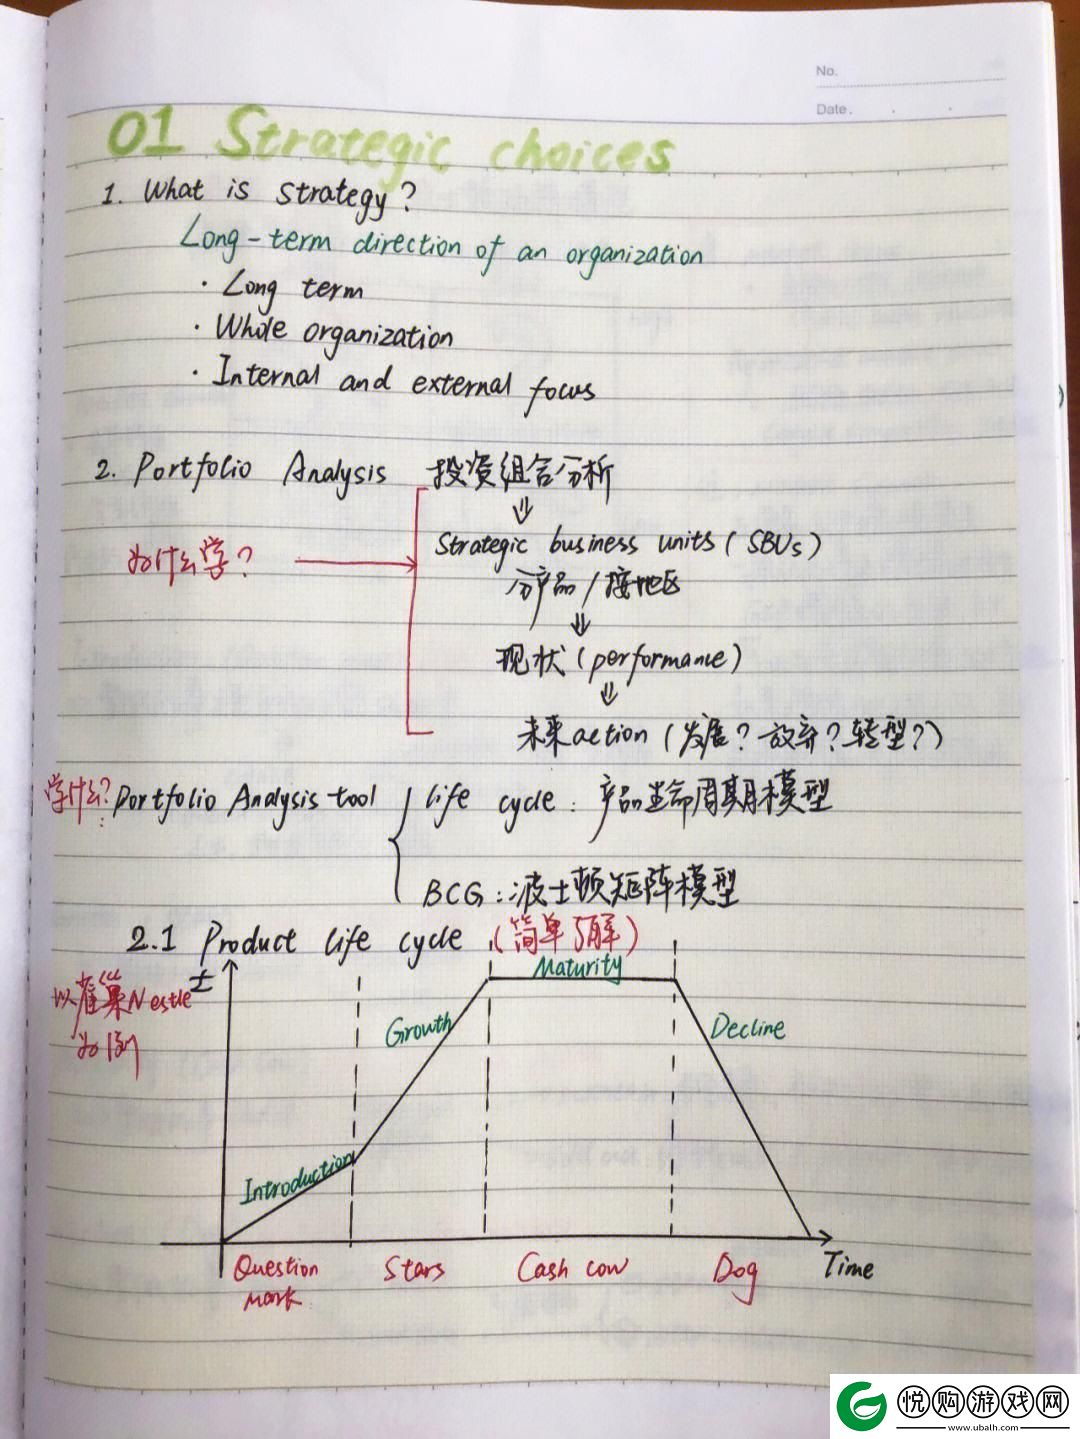 No.
Date.
01 Strategic choices
1. What is strategy?
Long-term direction of an organization
· Long term
· Whole organization
· Internal and external focus
2. Portfolio Analysis 投资组合分析
⇓
Strategic business units (SBUs)
为什么学?
分产品/按地区
⇓
现状(performance)
⇓
未来action (发展? 放弃? 转型?)
学什么? Portfolio Analysis tool
life cycle: 产品生命周期模型
BCG: 波士顿矩阵模型
2.1 Product life cycle (简单了解)
£
以雀巢Nestle
为例
Maturity
Growth
Decline
Introduction
Question mark
Stars
Cash cow
Dog
Time
悦购游戏网
www.ubalh.com